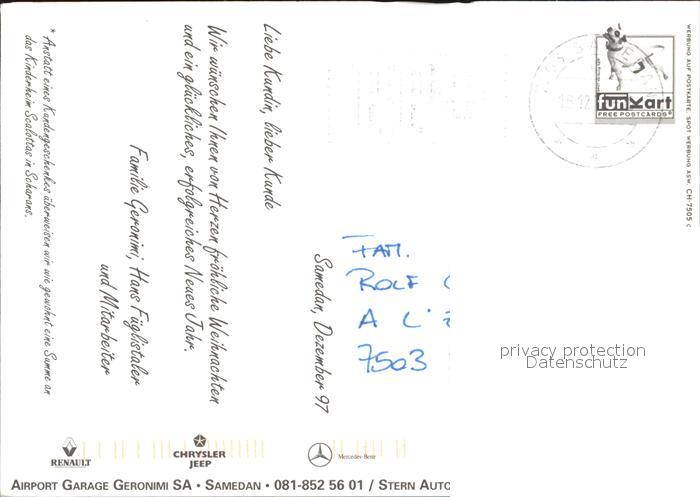 Samedan, Dezember 97
Liebe Kundin, lieber Kunde
Wir wünschen Ihnen von Herzen fröhliche Weihnachten
und ein glückliches, erfolgreiches Neues Jahr.
Familie Geronimi, Hans Füglistaler
und Mitarbeiter
* Anstatt eines Kundengeschenkes überweisen wir wie gewohnt eine Summe an
das Kinderheim Scalottas in Scharans.
FAM.
ROLF
A L'
7503
privacy protection
Datenschutz
fun Kart
FREE POSTCARDS
WERBUNG AUF POSTKARTE SPOT WERBUNG ASW. CH-7505 C
RENAULT
CHRYSLER
JEEP
Mercedes-Benz
AIRPORT GARAGE GERONIMI SA • SAMEDAN • 081-852 56 01 / STERN AUTO